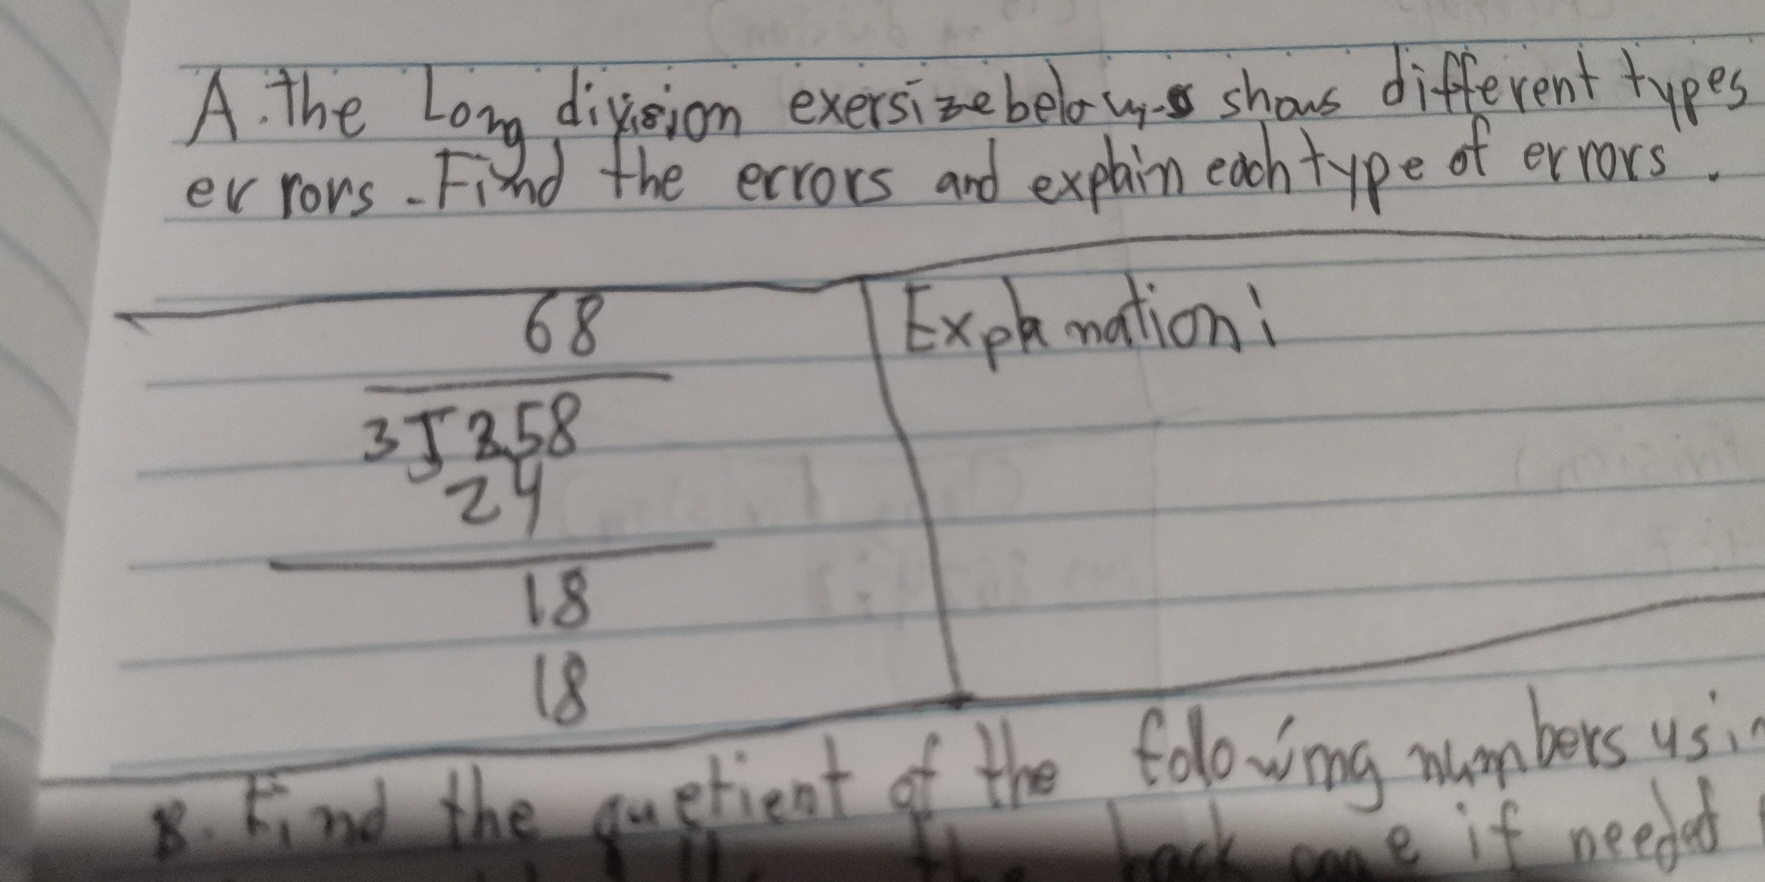 A. The Long division exersize below shows different types
errors. Find the errors and explain each type of errors.
68
Explanation:
3 258
24
18
18
B. Find the quetient of the folowing numbers usin
the back if needed